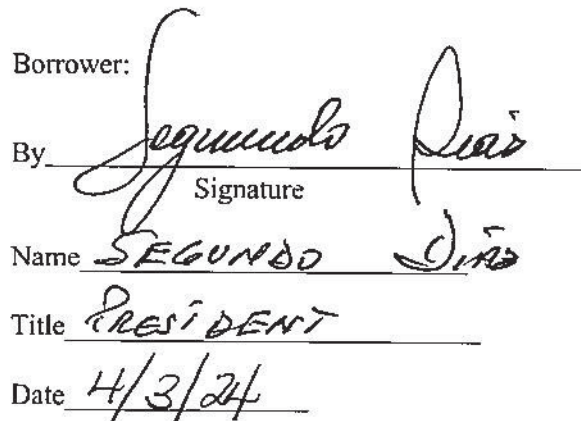 Borrower:
By Segundo Diaz
Signature
Name SEGUNDO DIAZ
Title PRESIDENT
Date 4/3/24